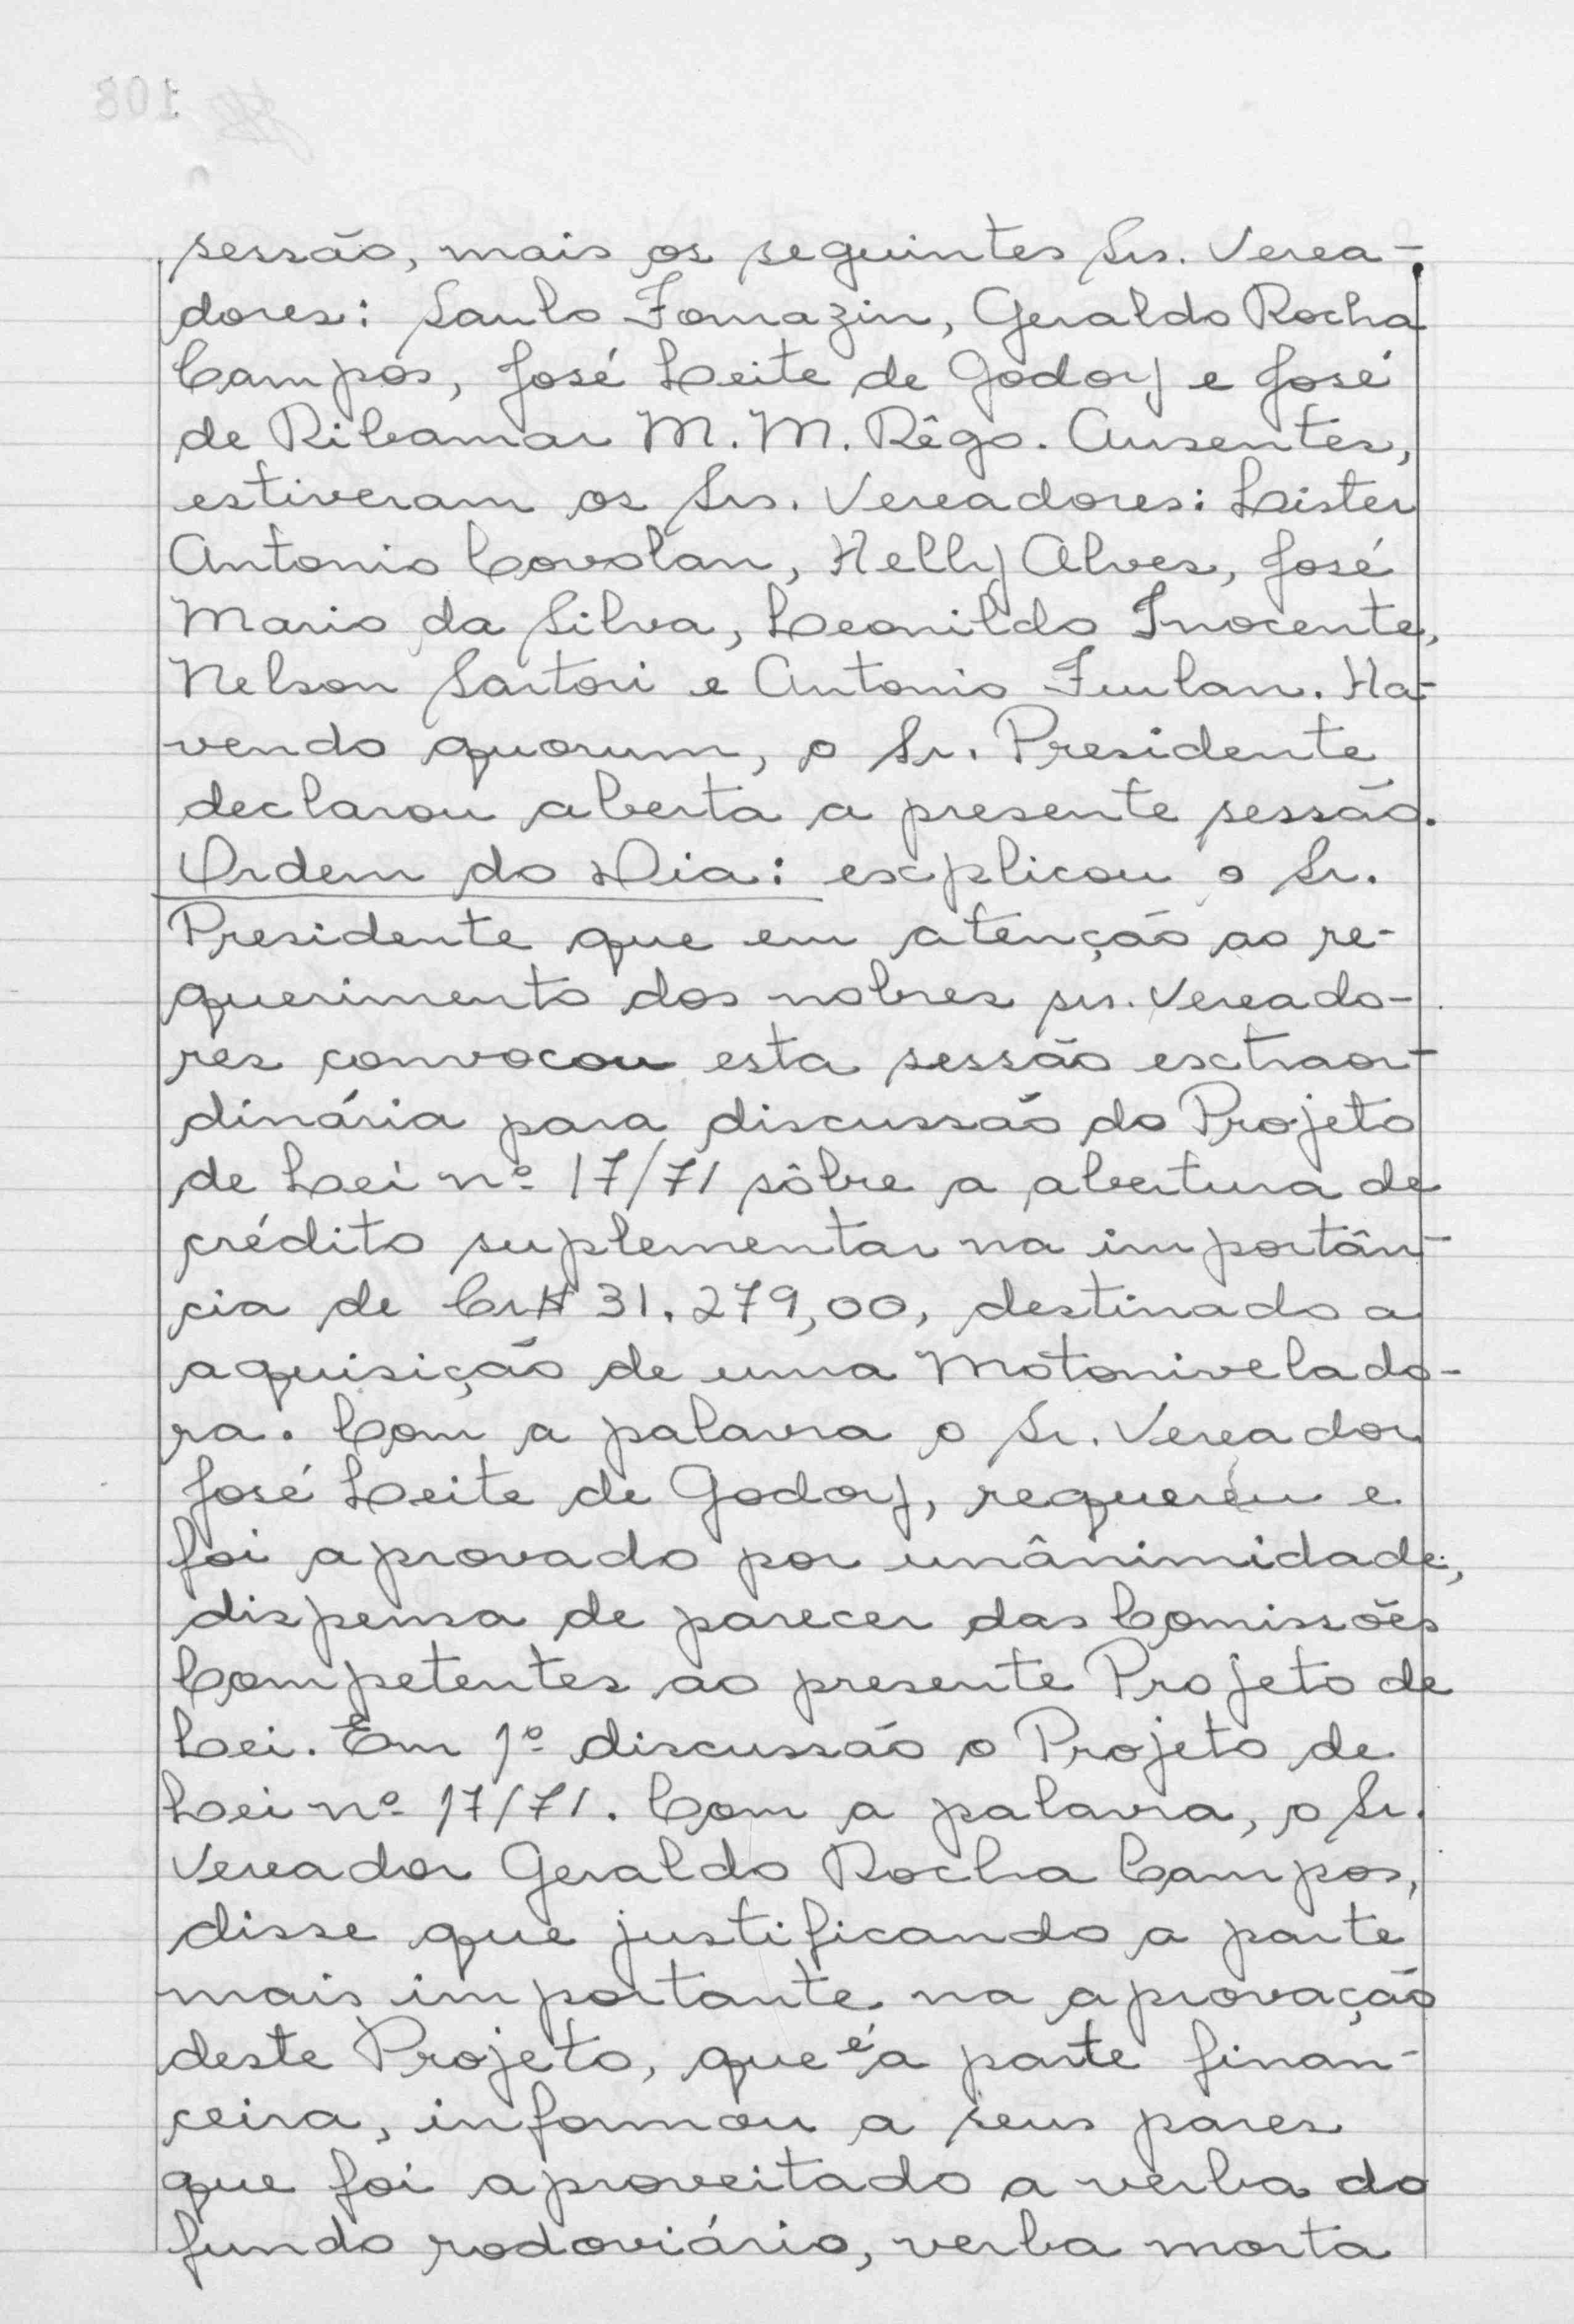 sessão, mais os seguintes Srs. Verea-
dores: Saulo Fomazin, Geraldo Rocha
Campos, José Leite de Godoy e José
de Ribamar M. M. Rêgo. Ausentes,
estiveram os Srs. Vereadores: Lister
Antonio Covolan, Helly Alves, José
Mario da Silva, Leonildo Inocente,
Nelson Sartori e Antonio Furlan. Ha-
vendo quorum, o Sr. Presidente
declarou aberta a presente sessão.
Ordem do Dia: explicou o Sr.
Presidente que em atenção ao re-
querimento dos nobres srs. Vereado-
res convocou esta sessão extraor-
dinária para discussão do Projeto
de Lei nº 17/71 sôbre a abertura de
crédito suplementar na importân-
cia de Cr$ 31.279,00, destinado a
aquisição de uma Motonivelado-
ra. Com a palavra o Sr. Vereador
José Leite de Godoy, requereu e
foi aprovado por unânimidade,
dispensa de parecer das Comissões
Competentes ao presente Projeto de
Lei. Em 1º discussão o Projeto de
Lei nº 17/71. Com a palavra, o Sr.
Vereador Geraldo Rocha Campos,
disse que justificando a parte
mais importante na aprovação
deste Projeto, que é a parte finan-
ceira, informou a seus pares
que foi aproveitado a verba do
fundo rodoviário, verba morta